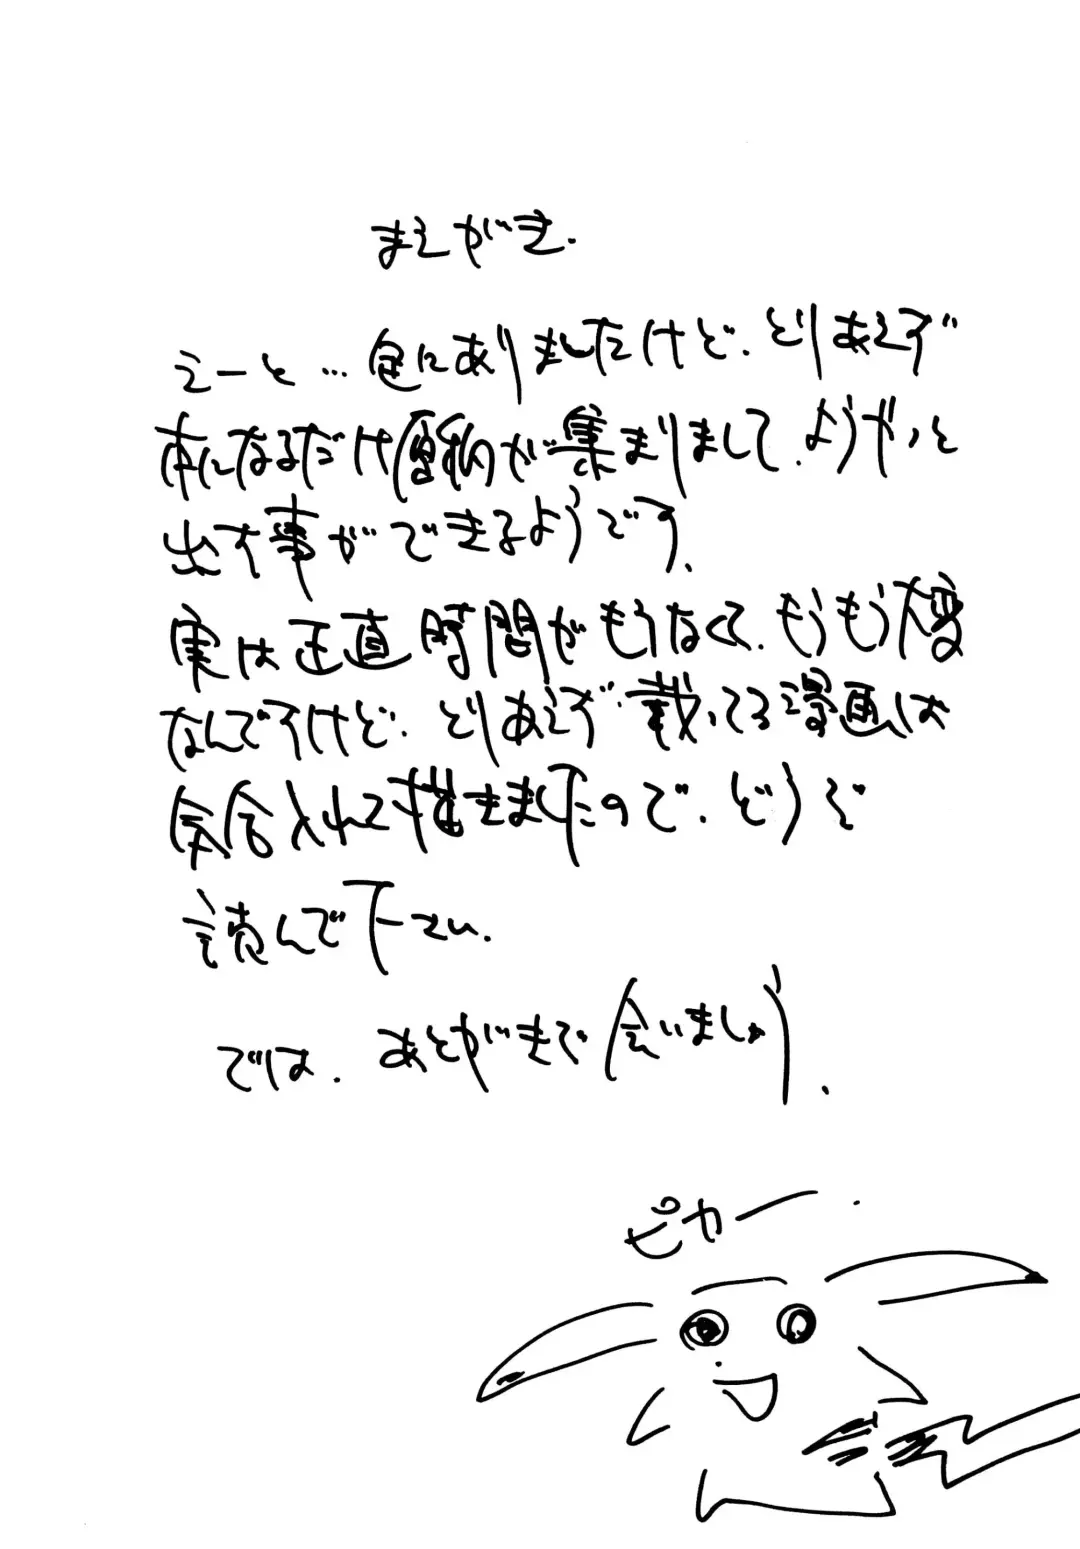 まえがき.
えーと…色々ありましたけど、とりあえず
本になるだけ原稿が集まりまして、ようやっと
出す事ができるようです。
実は正直時間がもうなくて、もうもう大変
なんですけど、とりあえず載ってる漫画は
気合入れて描きましたので、どうぞ
読んで下さい。
では、あとがきで会いましょう。
ピカー.